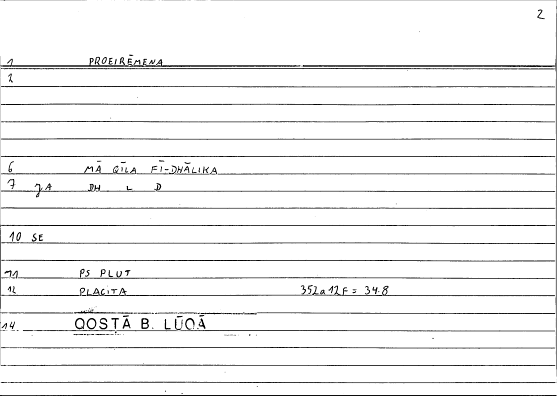 2
1 PROEIRĒMENA
2
6 MĀ QĪLA FĪ-DHĀLIKA
7 JA DH L D
10 SE
11 PS PLUT
12 PLACITA 352a12F = 34.8
14. QOSṬĀ B. LŪQĀ